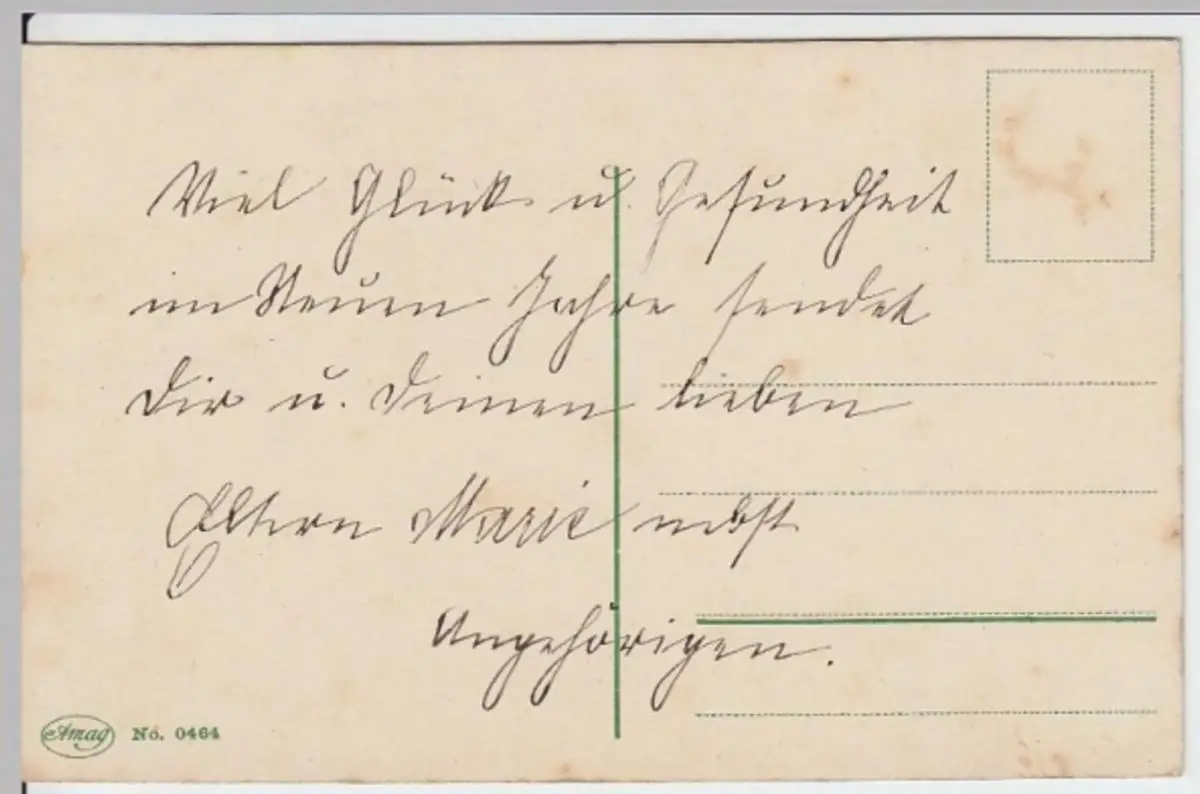 Viel Glück u. Gesundheit
im Neuen Jahre sendet
Dir u. Deinen lieben
Eltern Marie nebst
Angehörigen.
Amag No. 0464